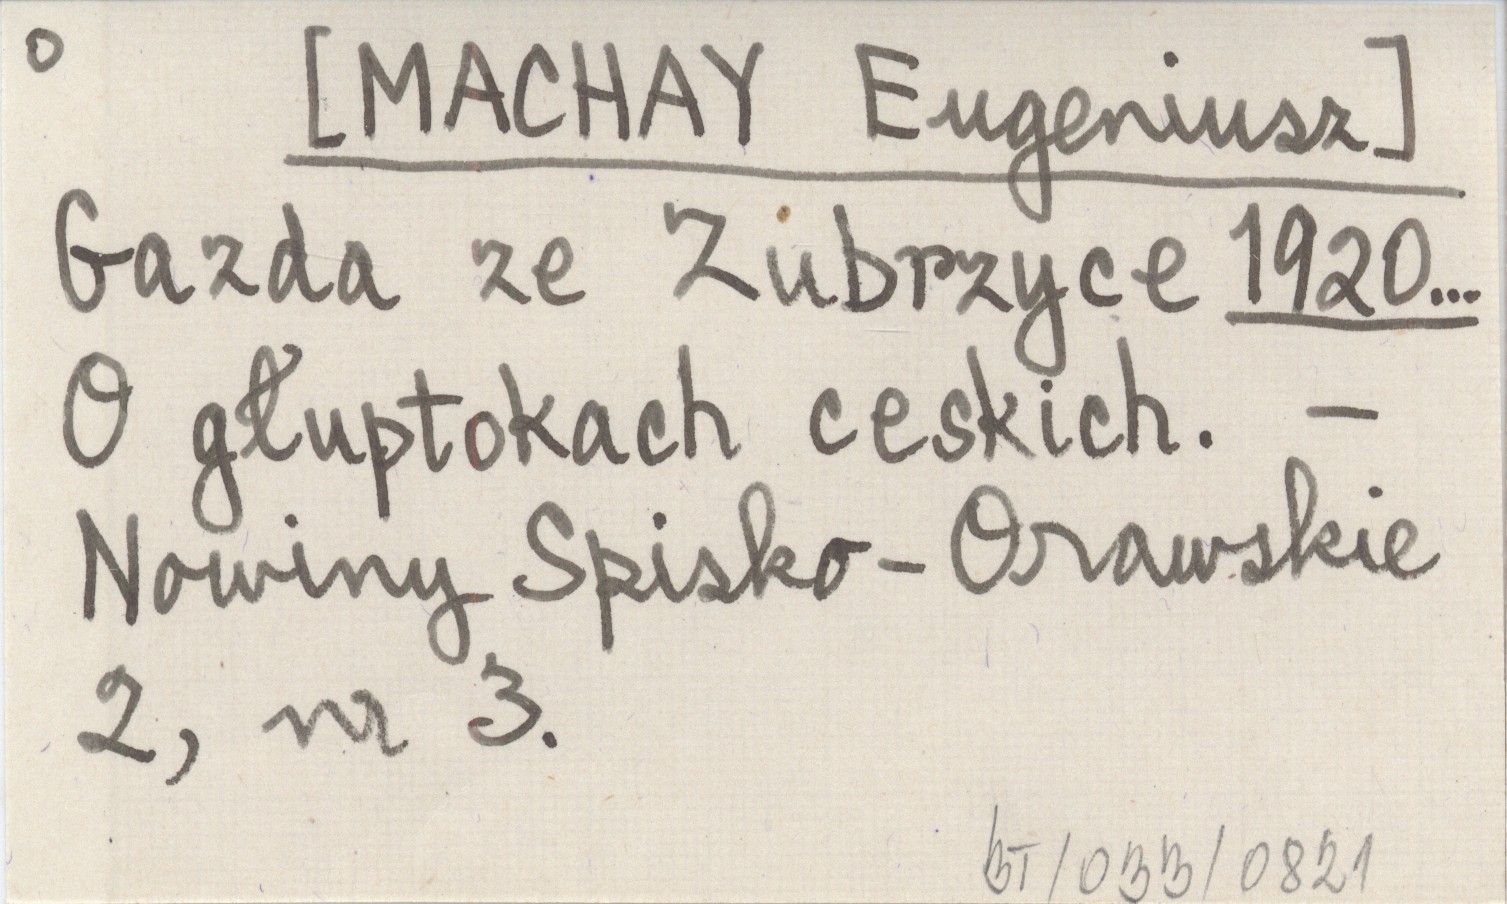 o [MACHAY Eugeniusz]
Gazda ze Zubrzyce 1920...
O głuptokach ceskich. -
Nowiny Spisko-Orawskie
2, nr 3.
BT/033/0821